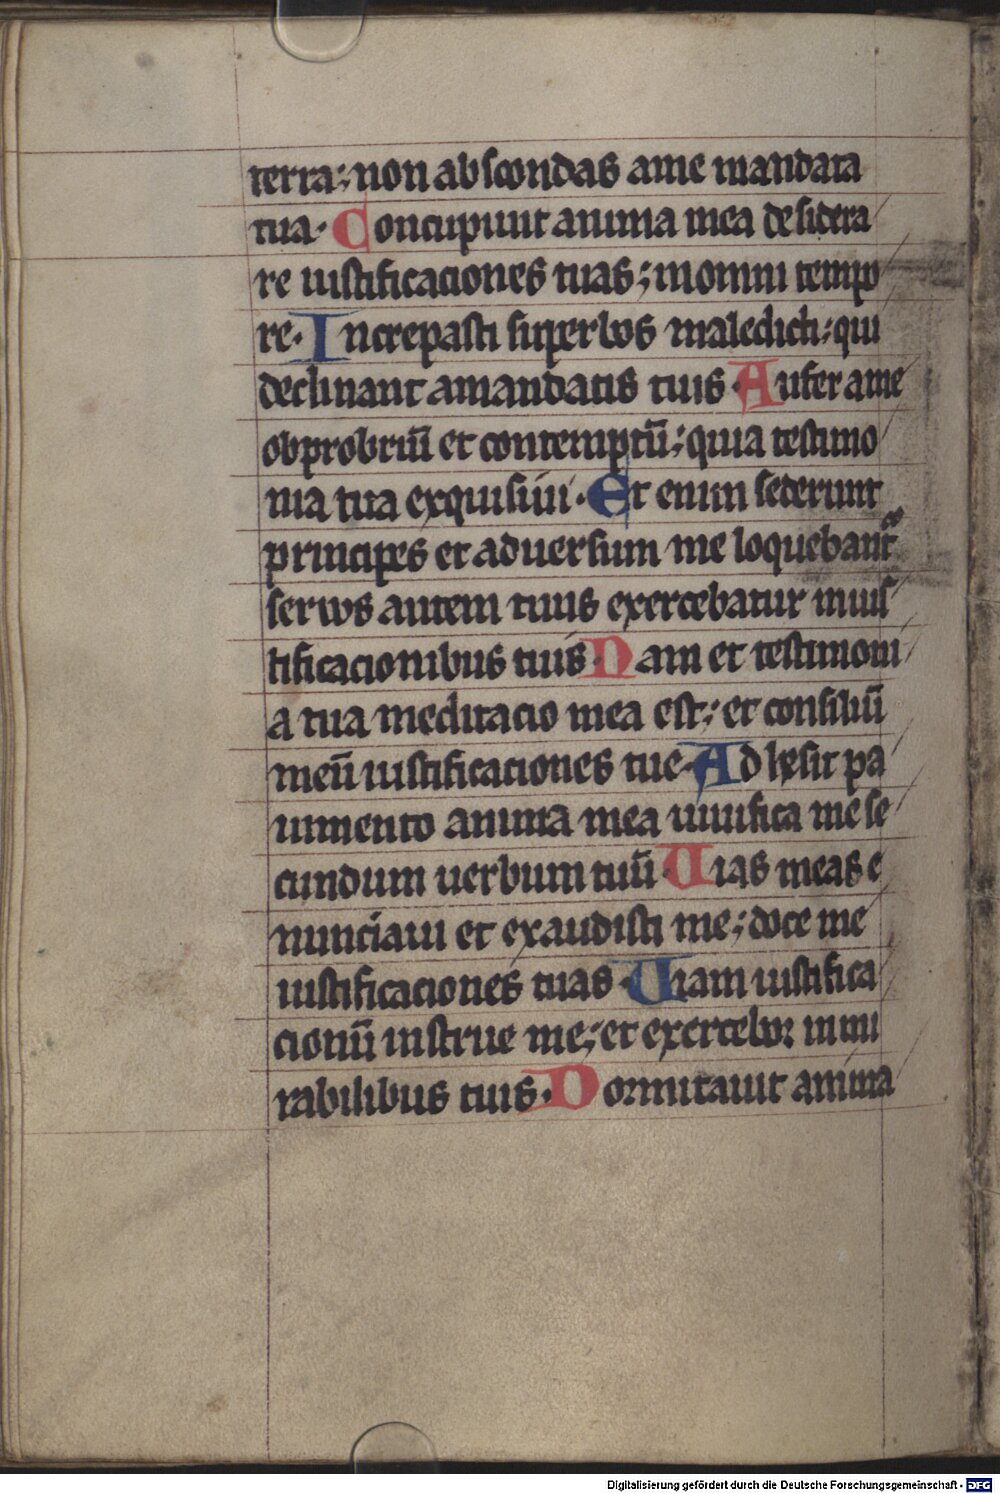 terra; non abscondas a me mandata
tua. Concupiuit anima mea desidera
re iustificaciones tuas; in omni tempo
re. Increpasti superbos maledicti; qui
declinant a mandatis tuis. Aufer a me
obprobriū et contemptū; quia testimo
nia tua exquisiui. Et enim sederunt
principes et aduersum me loquebant᷑
seruos autem tuus exercebatur in ius
tificacionibus tuis. Nam et testimoni
a tua meditacio mea est; et consiliū
meū iustificaciones tue. Adhęsit pa
uimento anima mea uiuifica me se
cundum uerbum tuū. Uias meas e
nunciaui et exaudisti me; doce me
iustificaciones tuas. Uiam iustifica
cionū instrue me; et exercebor in mi
rabilibus tuis. Dormitauit anima
Digitalisierung gefördert durch die Deutsche Forschungsgemeinschaft - DFG